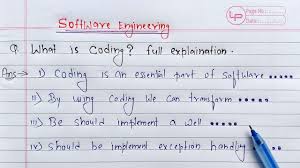 LP Page No.
Date
Software Engineering
Q. What is Coding? full explaination.
Ans→ i) Coding is an essential part of software .....
ii) By using Coding We Can transform .....
iii) Be should implement a well .....
iv) Should be implement exception handling ...